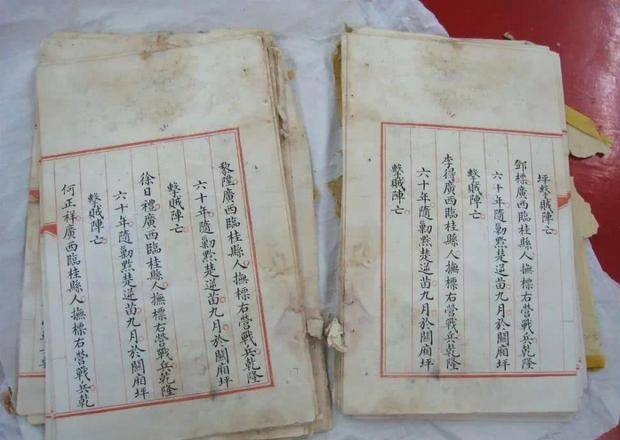 坪擊賊陣亡
鄧標廣西臨桂縣人撫標右營戰兵乾隆
六十年隨勦黔楚逆苗九月於關廂坪
擊賊陣亡
李得廣西臨桂縣人撫標右營戰兵乾隆
六十年隨勦黔楚逆苗九月於關廂坪
擊賊陣亡
黎陞廣西臨桂縣人撫標右營戰兵乾隆
六十年隨勦黔楚逆苗九月於關廂坪
擊賊陣亡
徐日禮廣西臨桂縣人撫標右營戰兵乾隆
六十年隨勦黔楚逆苗九月於關廂坪
擊賊陣亡
何正祥廣西臨桂縣人撫標右營戰兵乾